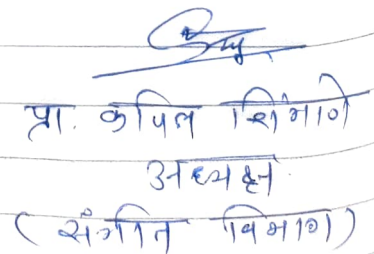 प्रा. कपिल शिंगाणे
अध्यक्ष
(संगीत विभाग)